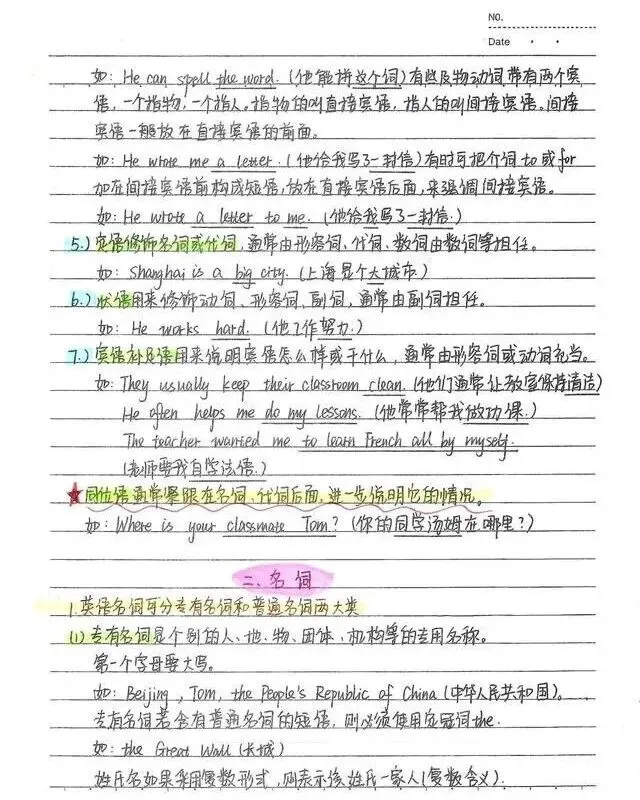 NO.
Date
如: He can spell the word. (他能拼这个词)有些及物动词带有两个宾
语，一个指物，一个指人。指物的叫直接宾语，指人的叫间接宾语。间接
宾语一般放在直接宾语的前面。
如: He wrote me a letter. (他给我写了一封信)有时可把介词to或for
加在间接宾语前构成短语，放在直接宾语后面，来强调间接宾语。
如: He wrote a letter to me. (他给我写了一封信.)
5.) 定语修饰名词或代词，通常由形容词、代词、数词由数词等担任。
如: Shanghai is a big city. (上海是个大城市.)
6.) 状语用来修饰动词、形容词、副词，通常由副词担任。
如: He works hard. (他工作努力.)
7.) 宾语补足语用来说明宾语怎么样或干什么，通常由形容词或动词充当。
如: They usually keep their classroom clean. (他们通常让教室保持清洁)
He often helps me do my lessons. (他常常帮我做功课.)
The teacher wanted me to learn French all by myself.
(老师要我自学法语.)
★同位语通常紧跟在名词、代词后面，进一步说明它的情况。
如: Where is your classmate Tom? (你的同学汤姆在哪里?)
二、名词
1.英语名词可分专有名词和普通名词两大类
(1) 专有名词是个别的人、地、物、团体、机构等的专用名称。
第一个字母要大写。
如: Beijing, Tom, the People's Republic of China (中华人民共和国)。
专有名词若含有普通名词的短语，则必须使用定冠词the.
如: the Great Wall (长城)
姓氏名如果采用复数形式，则表示该姓氏一家人(复数含义).